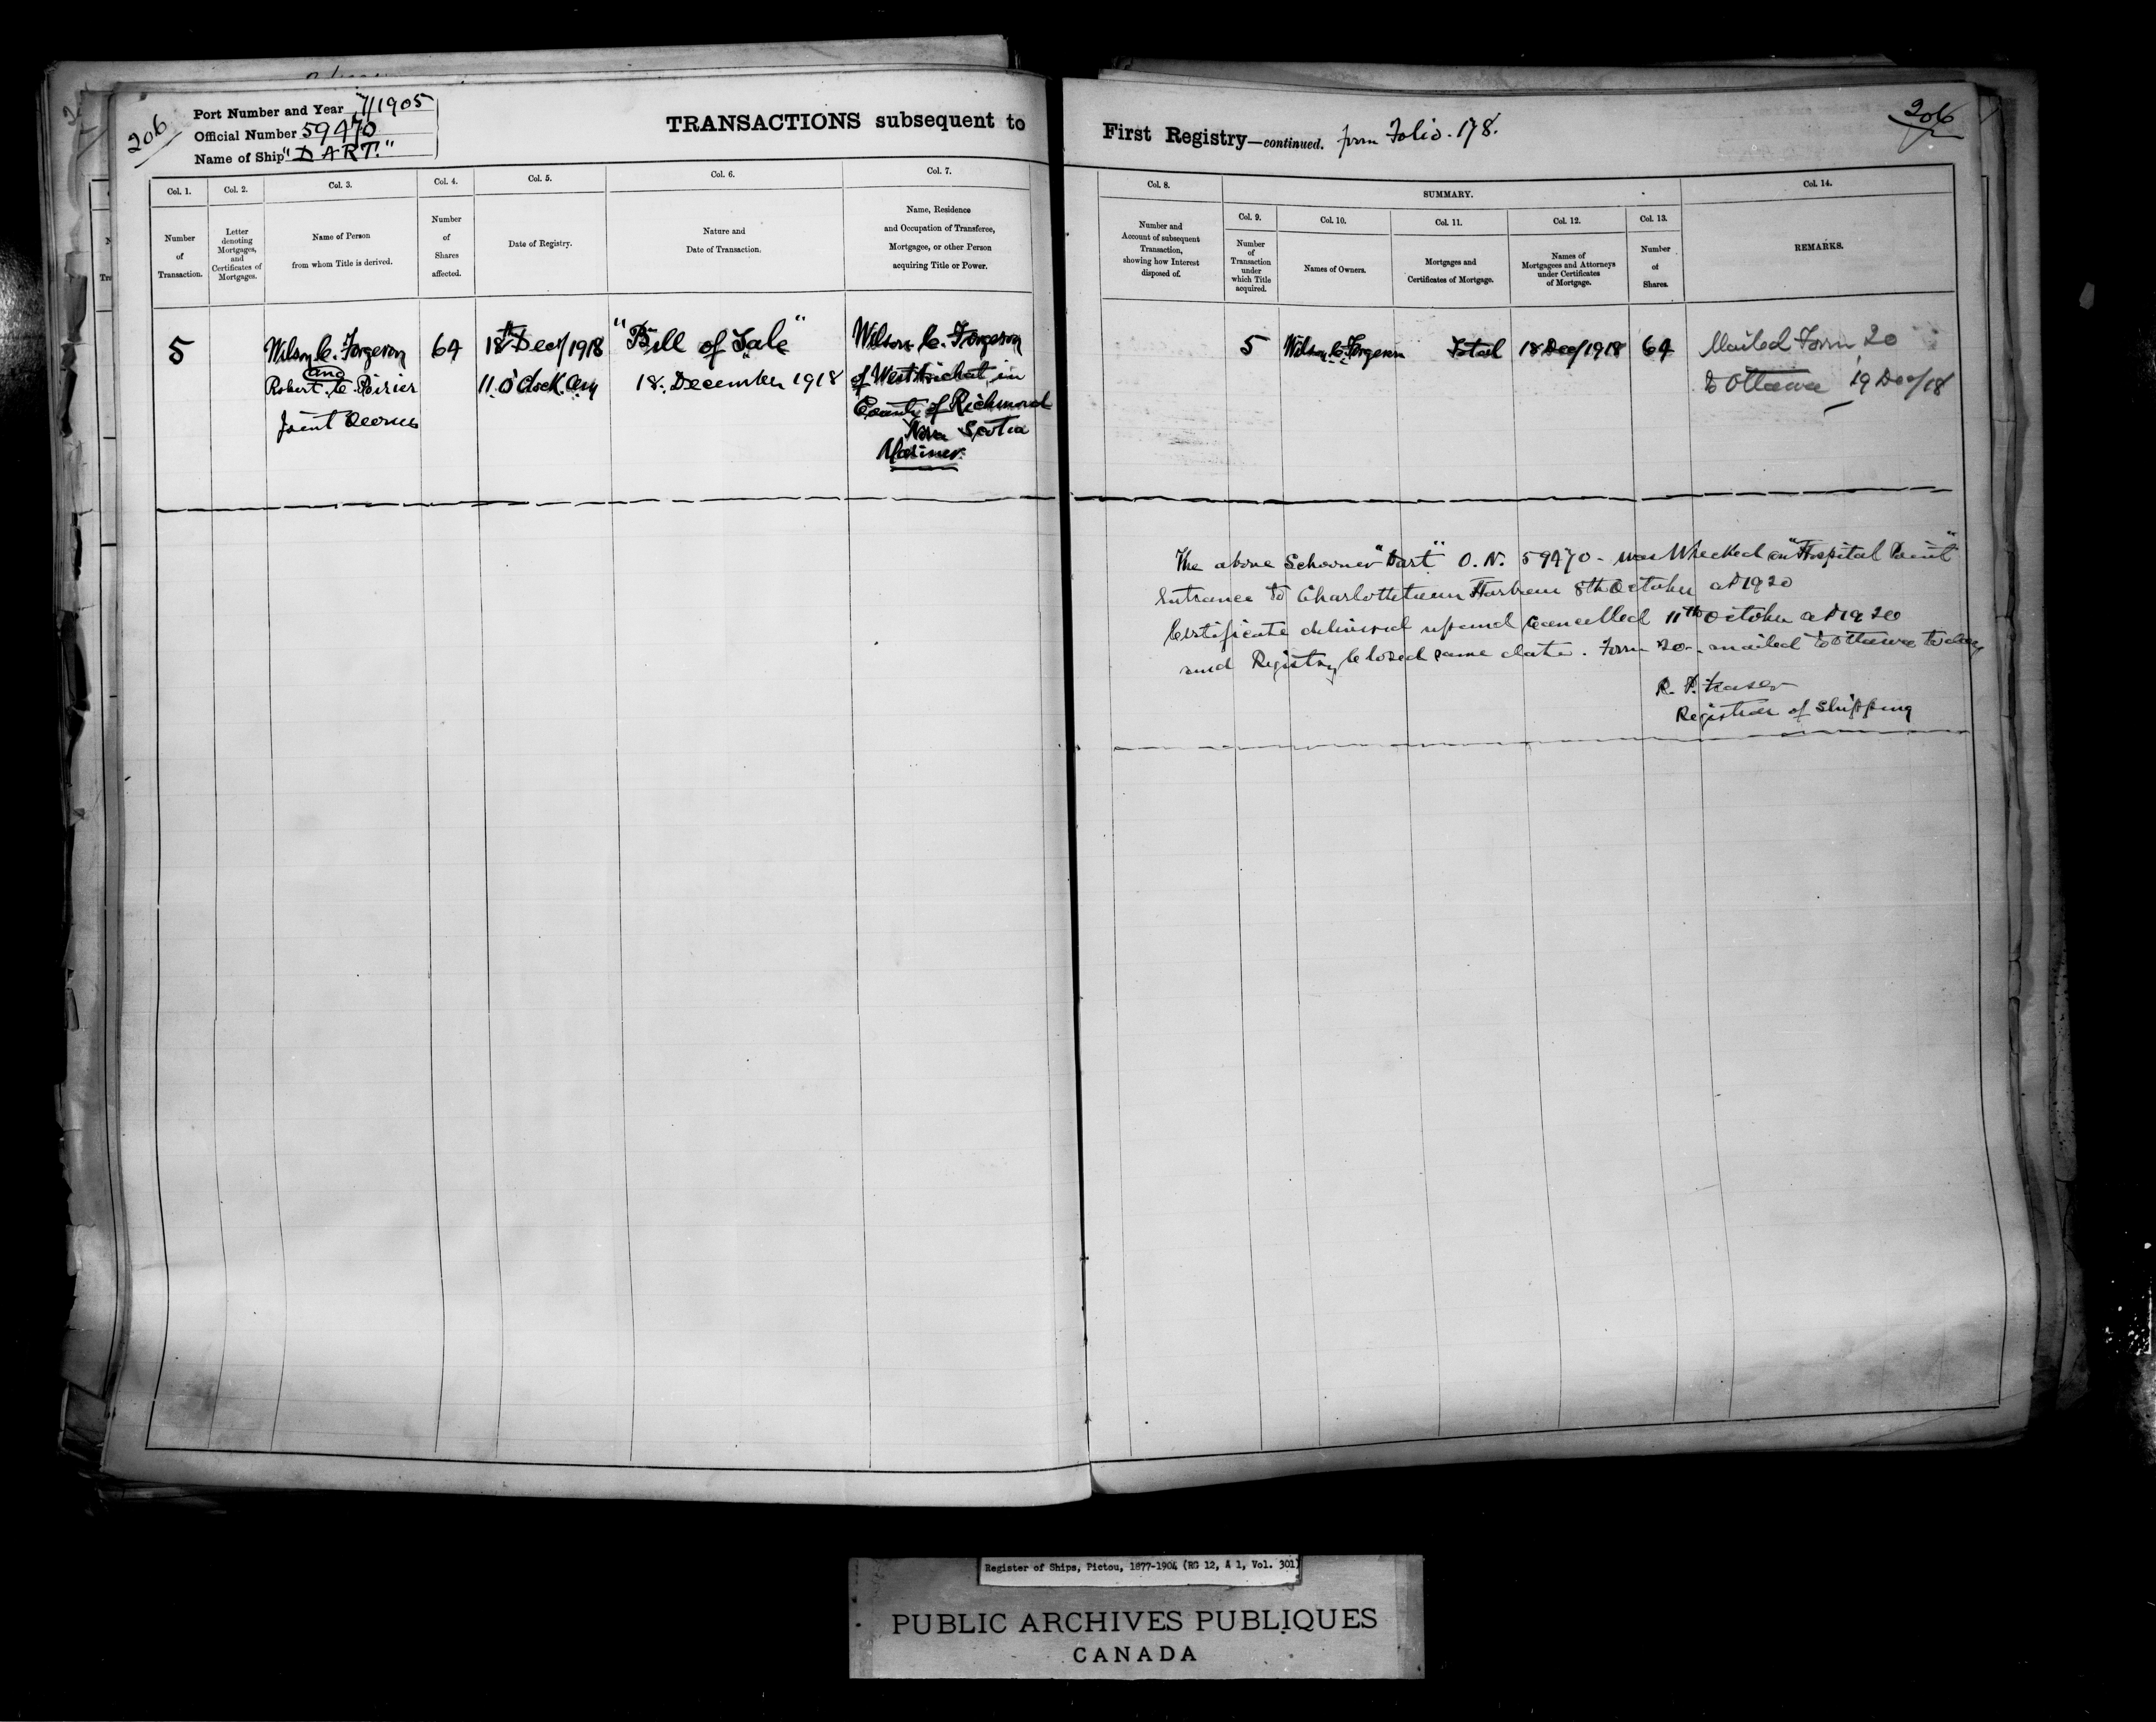 206
Port Number and Year 7/1905
Official Number 59470
Name of Ship "DART."
TRANSACTIONS subsequent to
Col. 1.
Col. 2.
Col. 3.
Col. 4.
Col. 5.
Col. 6.
Col. 7.
Number
of
Transaction.
Letter
denoting
Mortgages,
and
Certificates of
Mortgages.
Name of Person
from whom Title is derived.
Number
of
Shares
affected.
Date of Registry.
Nature and
Date of Transaction.
Name, Residence
and Occupation of Transferee,
Mortgagee, or other Person
acquiring Title or Power.
5
Wilson C. Forgeron
and
Robert C. Poirier
Joint Owners
64
18th Dec/1918
11 O'Clock am
"Bill of Sale"
18. December 1918
Wilson C. Forgeron
of West Arichat in
County of Richmond
Nova Scotia
Mariner.
First Registry—continued. from Folio. 178.
206
Col. 8.
SUMMARY.
Col. 14.
Col. 9.
Col. 10.
Col. 11.
Col. 12.
Col. 13.
Number and
Account of subsequent
Transaction,
showing how Interest
disposed of.
Number
of
Transaction
under
which Title
acquired.
Names of Owners.
Mortgages and
Certificates of Mortgage.
Names of
Mortgagees and Attorneys
under Certificates
of Mortgage.
Number
of
Shares.
REMARKS.
5
Wilson C. Forgeron
Total
18 Dec/1918
64
Mailed Form 20
to Ottawa 19 Dec/18
The above Schooner "Dart" O. N. 59470 - was Wrecked on "Hospital Point"
Entrance to Charlottetown Harbour 8th October AD 1920
Certificate delivered up and Cancelled 11th October AD 1920
and Registry Closed same date. Form 20 - mailed to Ottawa today
R. P. Fraser
Registrar of Shipping
Register of Ships, Pictou, 1877-1904 (RG 12, A 1, Vol. 301)
PUBLIC ARCHIVES PUBLIQUES
CANADA